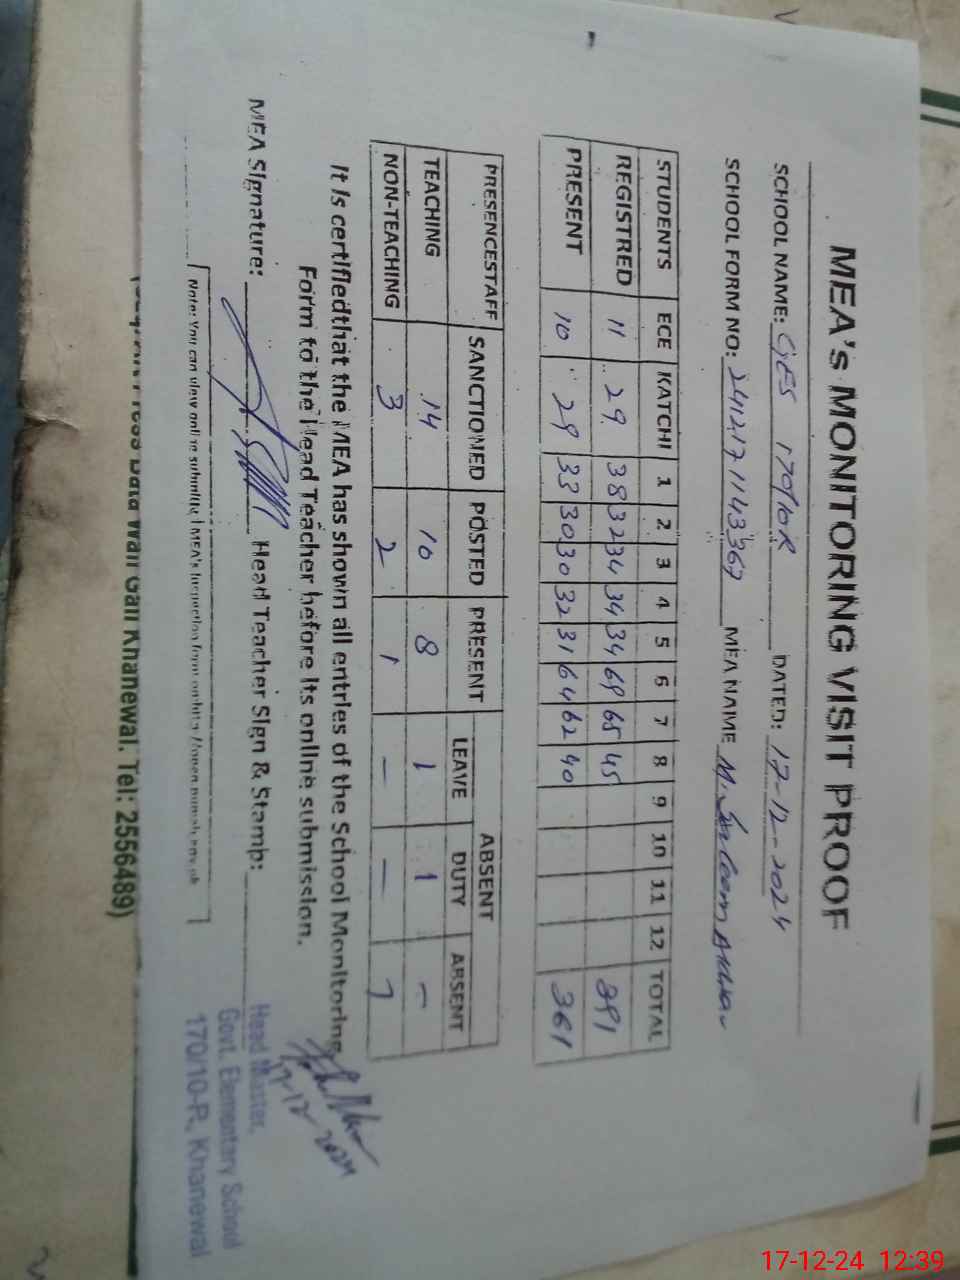 MEA's MONITORING VISIT PROOF
SCHOOL NAME: GES 170/10R DATED: 17-12-2024
SCHOOL FORM NO: 24121711143367 MEA NAME M.
STUDENTS ECE KATCHI 1 2 3 4 5 6 7 8 9 10 11 12 TOTAL
REGISTRED 11 29 38 32 34 34 34 69 65 45 391
PRESENT 10 29 33 30 30 32 31 64 62 40 361
PRESENCESTAFF SANCTIONED POSTED PRESENT ABSENT
LEAVE DUTY ABSENT
TEACHING 14 10 8 1 1 –
NON-TEACHING 3 2 1 – – 1
It is certifiedthat the MEA has shown all entries of the School Monitoring
Form to the Head Teacher before its online submission.
MEA Signature: Head Teacher Sign & Stamp:
17-12-2024
Head Master,
Govt. Elementary School
170/10-R, Khanewal
Note: You can view online submitted MEA's Inspection form on
Khanewal. Tel: 2556489)
17-12-24 12:39